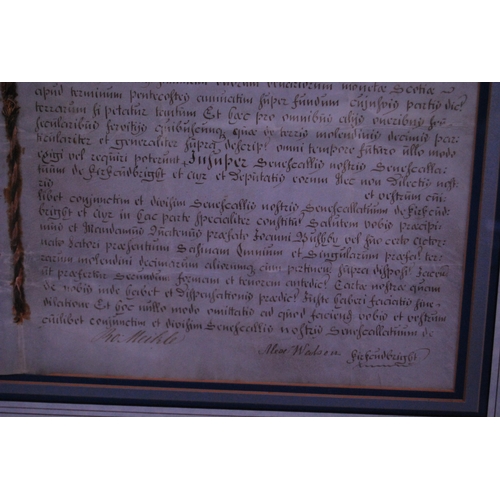 apud terminum pentecostes annuatim super fundum cujusvis partis dict
terrarum si petatur tentum Et hoc pro omnibus alijs oneribus se
secularibus servitijs quibuscunq quæ de terris molendinis decimis par
ticulariter et generaliter supra descript omni tempore futuro ullo modo
exigi vel requiri poterunt Insuper Senescallis nostris Senescallar
tuum de Kirkcudbright et eorum Nec non Dilectis nost
ris et vestrum cui
libet conjunctim et divisim Senescallis nostris Senescallatuum de Kirkcud
bright et in hac parte specialiter constitut Salutem vobis præcipi
mus et Mandamus Quatenus præfato Joanni Bushby vel suo certo Actor
nato latori præsentium Sasinam Omnium et Singularum præfat ter
rarum molendini decimarum aliorumq cum pertinen supra disposit Jacen
ut præfertur Secundum formam et tenorem antedict Cartæ nostræ quam
de nobis inde habet et dispensationis prædict Juste haberi faciatis sine
dilatione Et hoc nullo modo omittatis ad quod faciend vobis et vestrum
cuilibet conjunctim et divisim Senescallis nostris Senescallatuum de
Alexr Watson Kirkcudbright